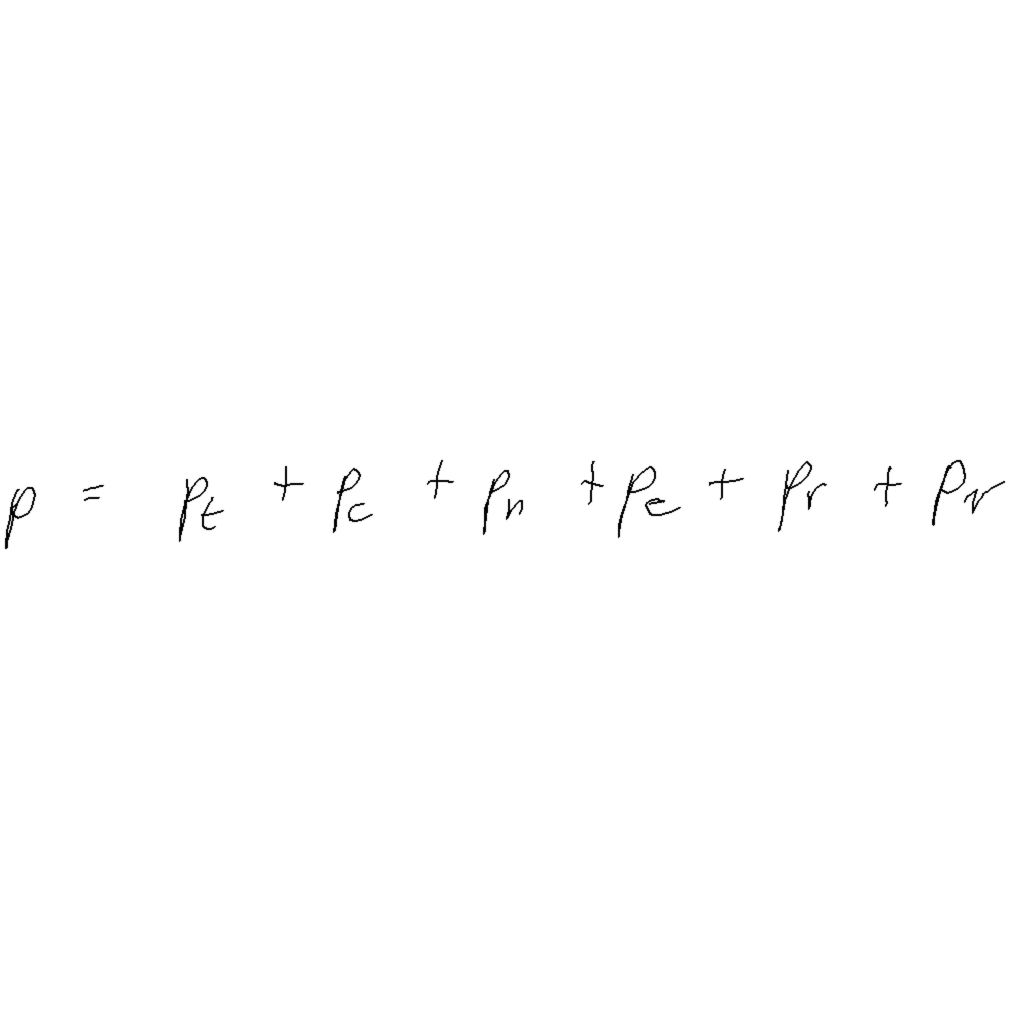 p = p_t + p_c + p_n + p_e + p_r + p_v